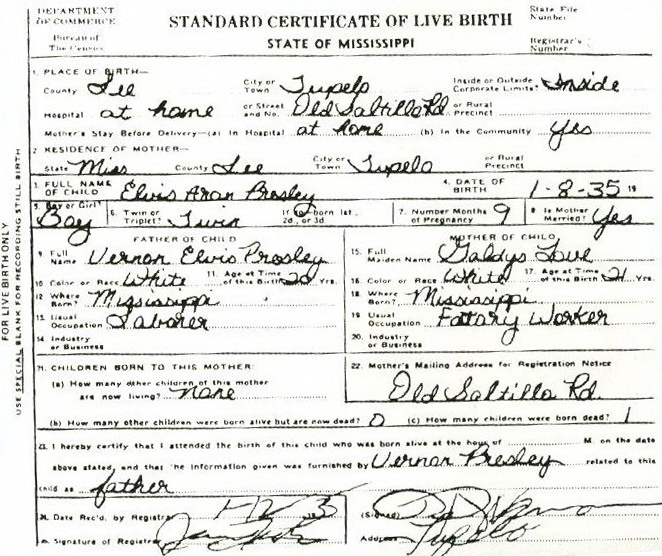 DEPARTMENT OF COMMERCE
Bureau of The Census
STANDARD CERTIFICATE OF LIVE BIRTH
STATE OF MISSISSIPPI
State File Number
Registrar's Number
FOR LIVE BIRTH ONLY
USE SPECIAL BLANK FOR RECORDING STILL BIRTH
1. PLACE OF BIRTH—
County Lee City or Town Tupelo Inside or Outside Corporate Limits? Inside
Hospital at home or Street and No. Old Saltillo Rd. or Rural Precinct
Mother's Stay Before Delivery—(a) In Hospital at home (b) In the Community yes
2. RESIDENCE OF MOTHER—
State Miss County Lee City or Town Tupelo or Rural Precinct
3. FULL NAME OF CHILD Elvis Aron Presley 4. DATE OF BIRTH 1-8-35 19
5. Boy or Girl? Boy 6. Twin or Triplet? Twin If so—born 1st, 2d, or 3d 7. Number Months of Pregnancy 9 8. Is Mother Married? yes
FATHER OF CHILD
9. Full Name Vernon Elvis Presley
10. Color or Race White 11. Age at Time of this Birth Yrs.
12. Where Born? Mississippi
13. Usual Occupation Laborer
14. Industry or Business
MOTHER OF CHILD
15. Full Maiden Name Gladys Love
16. Color or Race White 17. Age at Time of this Birth 21 Yrs.
18. Where Born? Mississippi
19. Usual Occupation Factory Worker
20. Industry or Business
21. CHILDREN BORN TO THIS MOTHER:
(a) How many other children of this mother are now living? none
22. Mother's Mailing Address for Registration Notice
Old Saltillo Rd.
(b) How many other children were born alive but are now dead? 0 (c) How many children were born dead? 1
23. I hereby certify that I attended the birth of this child who was born alive at the hour of M. on the date
above stated, and that the information given was furnished by Vernon Presley related to this
child as father
24. Date Rec'd. by Registrar 19
Signature of Registrar
(Signed)
Address Tupelo